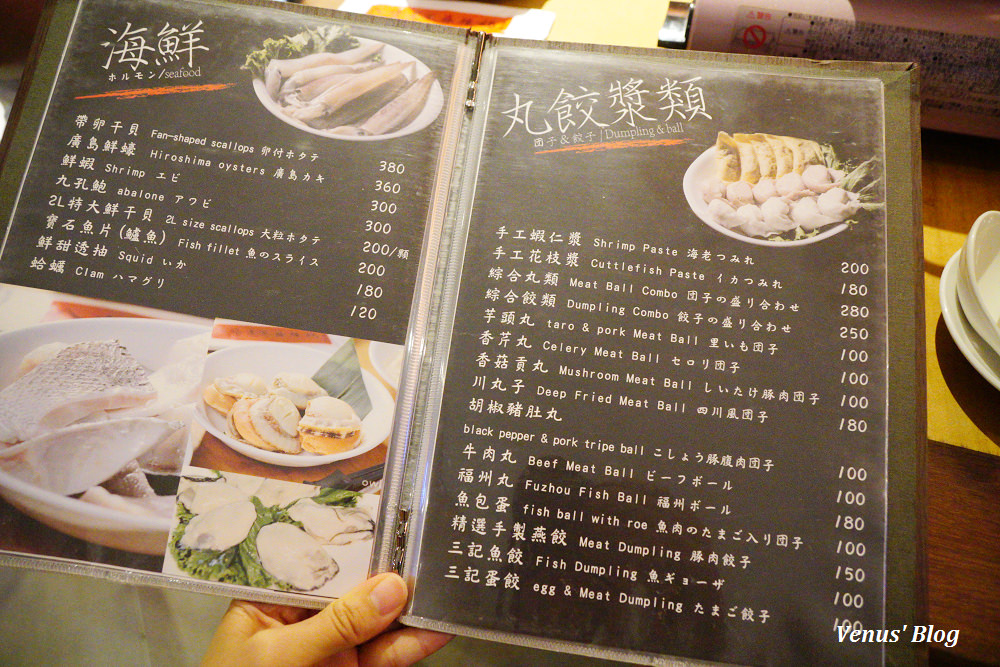 海鮮
ホルモン/seafood
帶卵干貝 Fan-shaped scallops 卵付ホタテ 380
廣島鮮蠔 Hiroshima oysters 廣島カキ 360
鮮蝦 Shrimp エビ 300
九孔鮑 abalone アワビ 300
2L特大鮮干貝 2L size scallops 大粒ホタテ 200/顆
寶石魚片(鱸魚) Fish fillet 魚のスライス 200
鮮甜透抽 Squid いか 180
蛤蠣 Clam ハマグリ 120
丸餃漿類
団子&餃子/Dumpling & ball
手工蝦仁漿 Shrimp Paste 海老つみれ 200
手工花枝漿 Cuttlefish Paste イカつみれ 180
綜合丸類 Meat Ball Combo 団子の盛り合わせ 280
綜合餃類 Dumpling Combo 餃子の盛り合わせ 250
芋頭丸 taro & pork Meat Ball 里いも団子 100
香芹丸 Celery Meat Ball セロリ団子 100
香菇貢丸 Mushroom Meat Ball しいたけ豚肉団子 100
川丸子 Deep Fried Meat Ball 四川風団子 180
胡椒豬肚丸
black pepper & pork tripe ball こしょう豚腹肉団子 100
牛肉丸 Beef Meat Ball ビーフボール 100
福州丸 Fuzhou Fish Ball 福州ボール 180
魚包蛋 fish ball with roe 魚肉のたまご入り団子 100
精選手製燕餃 Meat Dumpling 豚肉餃子 150
三記魚餃 Fish Dumpling 魚ギョーザ 100
三記蛋餃 egg & Meat Dumpling たまご餃子 100
Venus' Blog